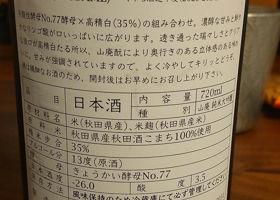 酵母No.77酵母×高精白(35%)の組み合わせ。濃醇な甘みと鮮
かなリンゴ酸が口いっぱいに広がります。透き通った瑞々しさとアリ
が高たる所以、山廃酛により奥行きのある立体感のある
甘みが強調されていますので、よく冷やしてキリッとどうぞ。
繊細なお酒のため、開封後はお早めにお召し上がり下さい。
日本酒 内容量 720ml
種別 山廃 純米大吟醸
原材料名 米(秋田県産)、米麹(秋田県産米)
原料米 秋田県産秋田酒こまち100%使用
精米歩合 35%
アルコール分 13度(原酒)
きょうかい酵母No.77
日本酒度 -26.0 酸度 3.5
保存方法 風味保持のため冷蔵庫にて必ず管理してください